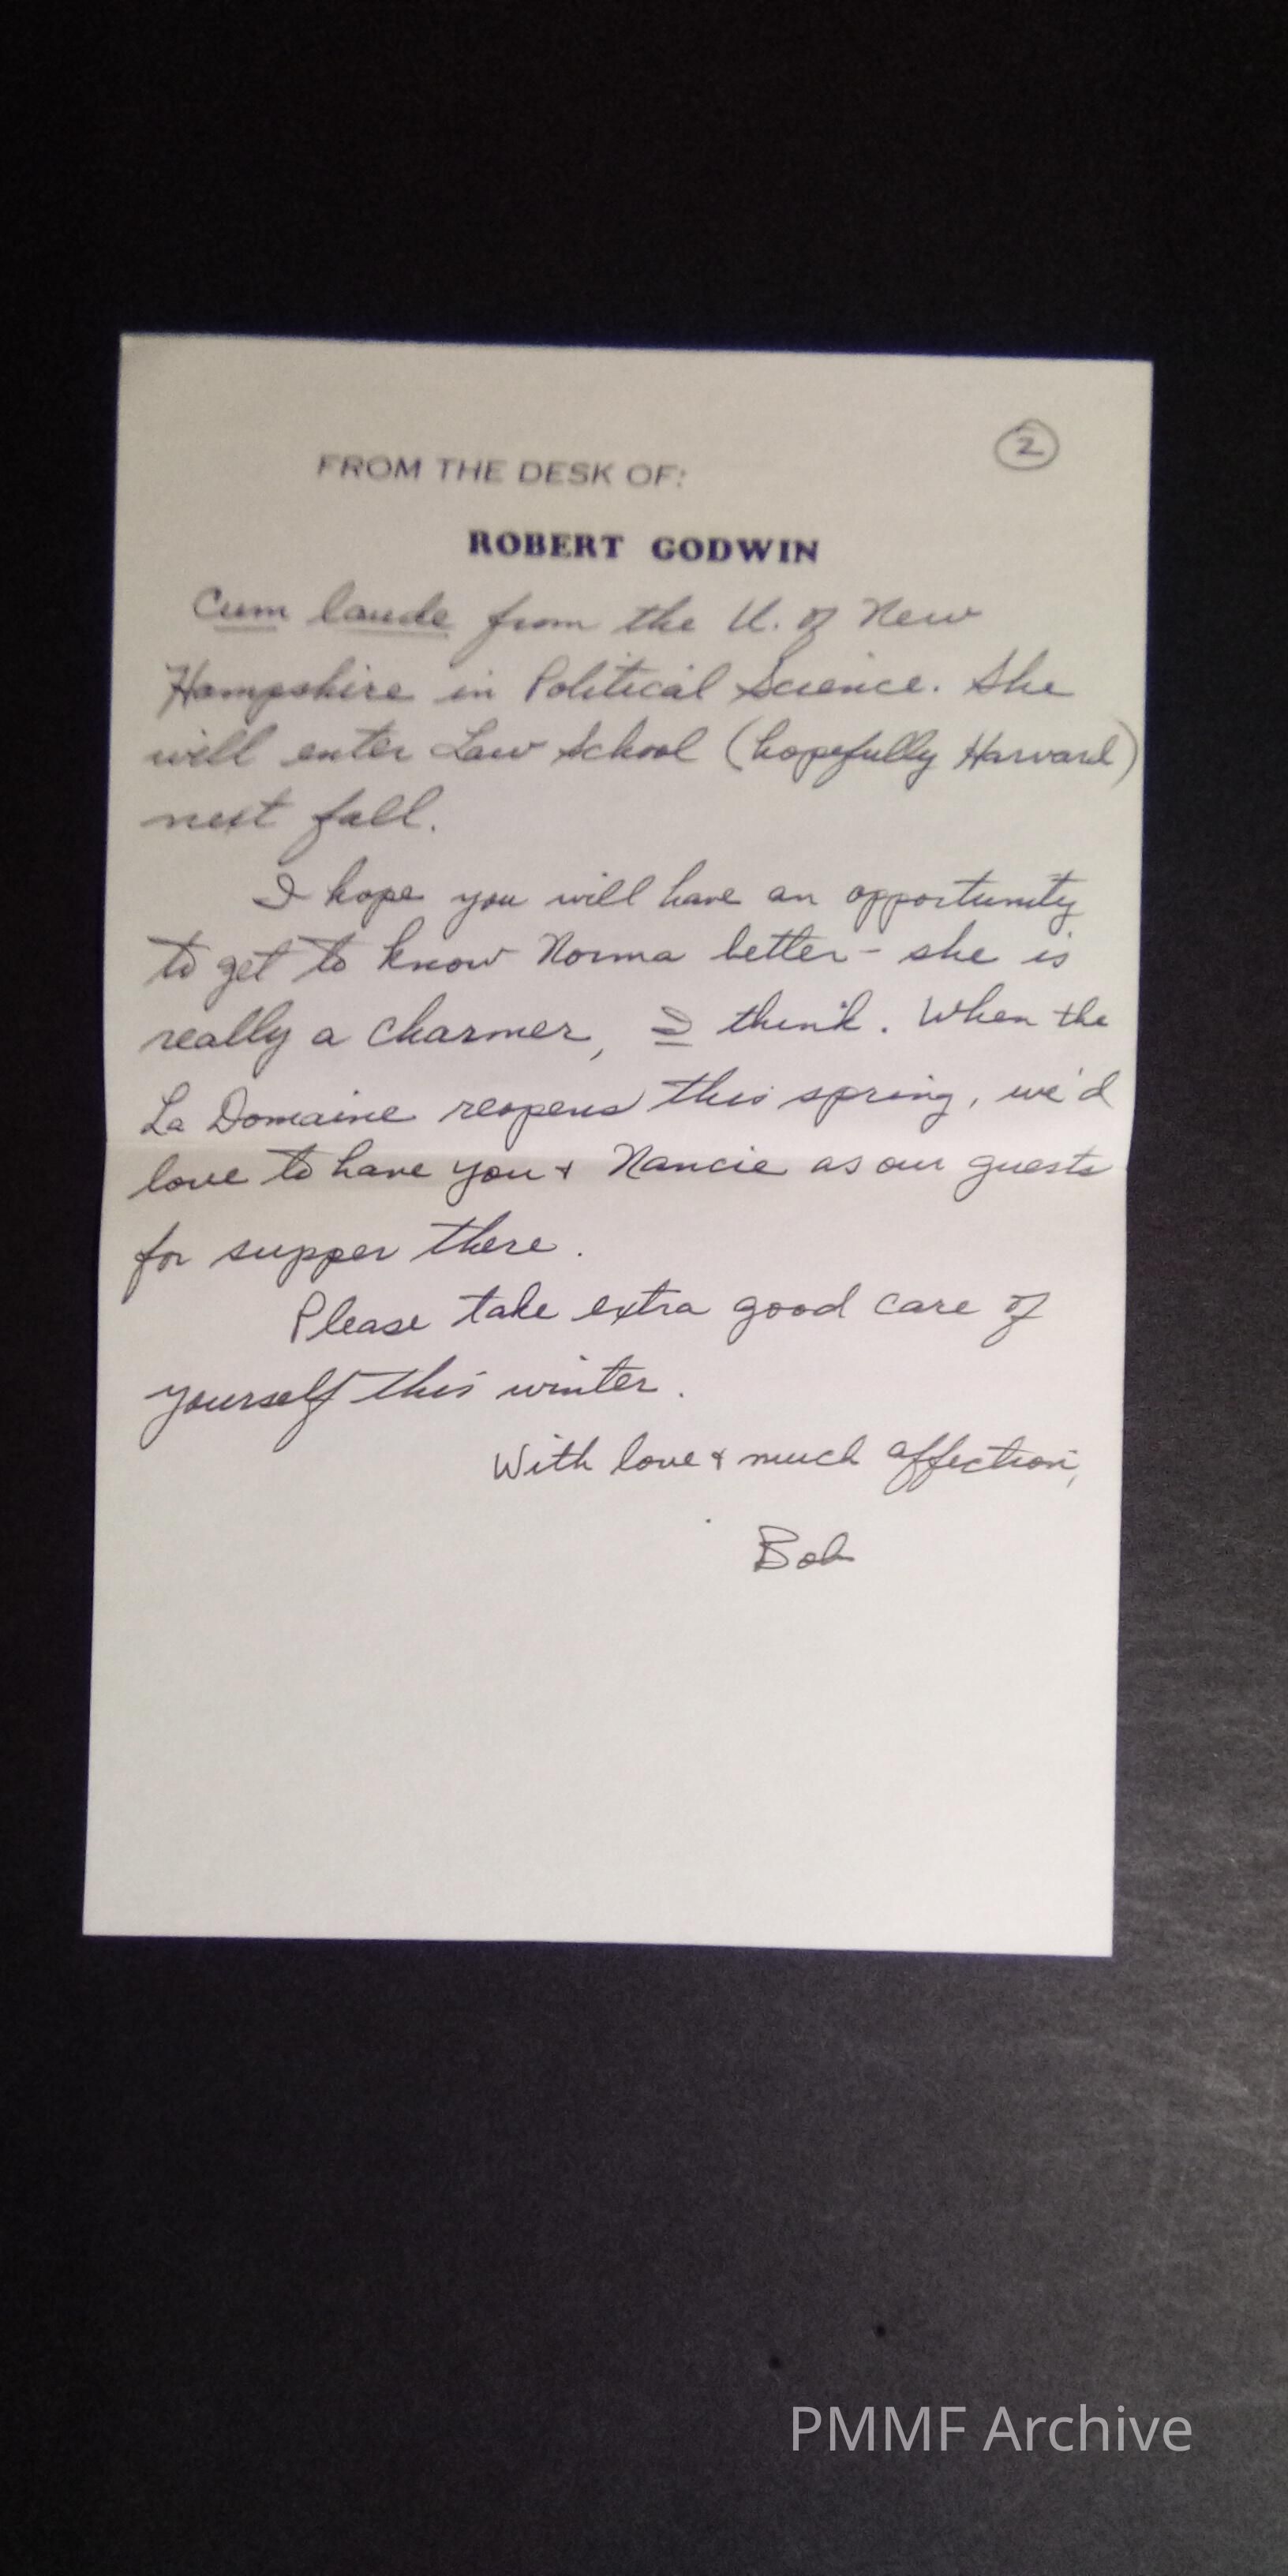 ②
FROM THE DESK OF:
ROBERT GODWIN
Cum laude from the U. of New
Hampshire in Political Science. She
will enter Law School (hopefully Harvard)
next fall.
I hope you will have an opportunity
to get to know Norma better - she is
really a charmer, I think. When the
La Domaine reopens this spring, we'd
love to have you & Nancie as our guests
for supper there.
Please take extra good care of
yourself this winter.
With love & much affection,
Bob
PMMF Archive